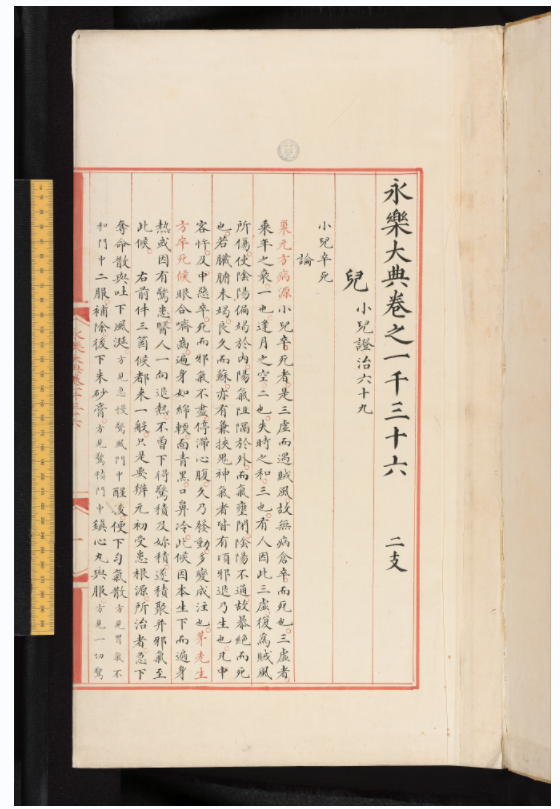 永樂大典卷之一千三十六 二支
兒 小兒證治六十九
小兒卒死
論
巢元方病源小兒卒死者是三虛而遇賊風故無病倉卒而死也三虛者
乘年之衰一也逢月之空二也失時之和三也有人因此三虛復為賊風
所傷使陰陽偏竭於內陽氣阻隔於外而氣壅閉陰陽不通故暴絕而死
也若臟腑未竭良久而蘇亦有兼挾鬼神氣者皆有頃邪退乃生也凡中
客忤及中惡卒死而邪氣不盡停滯心腹久乃發動多變成注也茅先生
方卒死候眼合嚌高遍身如綿輭面青黑口鼻冷此候因本生下而遍身
熱或因有驚患醫人一向退熱不曾下得驚積及妳積遂積聚并邪氣至
此候右前件三箇候都来一般只是要辨元初受患根源所治者急下
奪命散與吐下風涎方見急慢驚風門中醒後便下勻氣散方見胃氣不
和門中二服補除後下来砂膏方見驚積門中鎮心丸與服方見一切驚